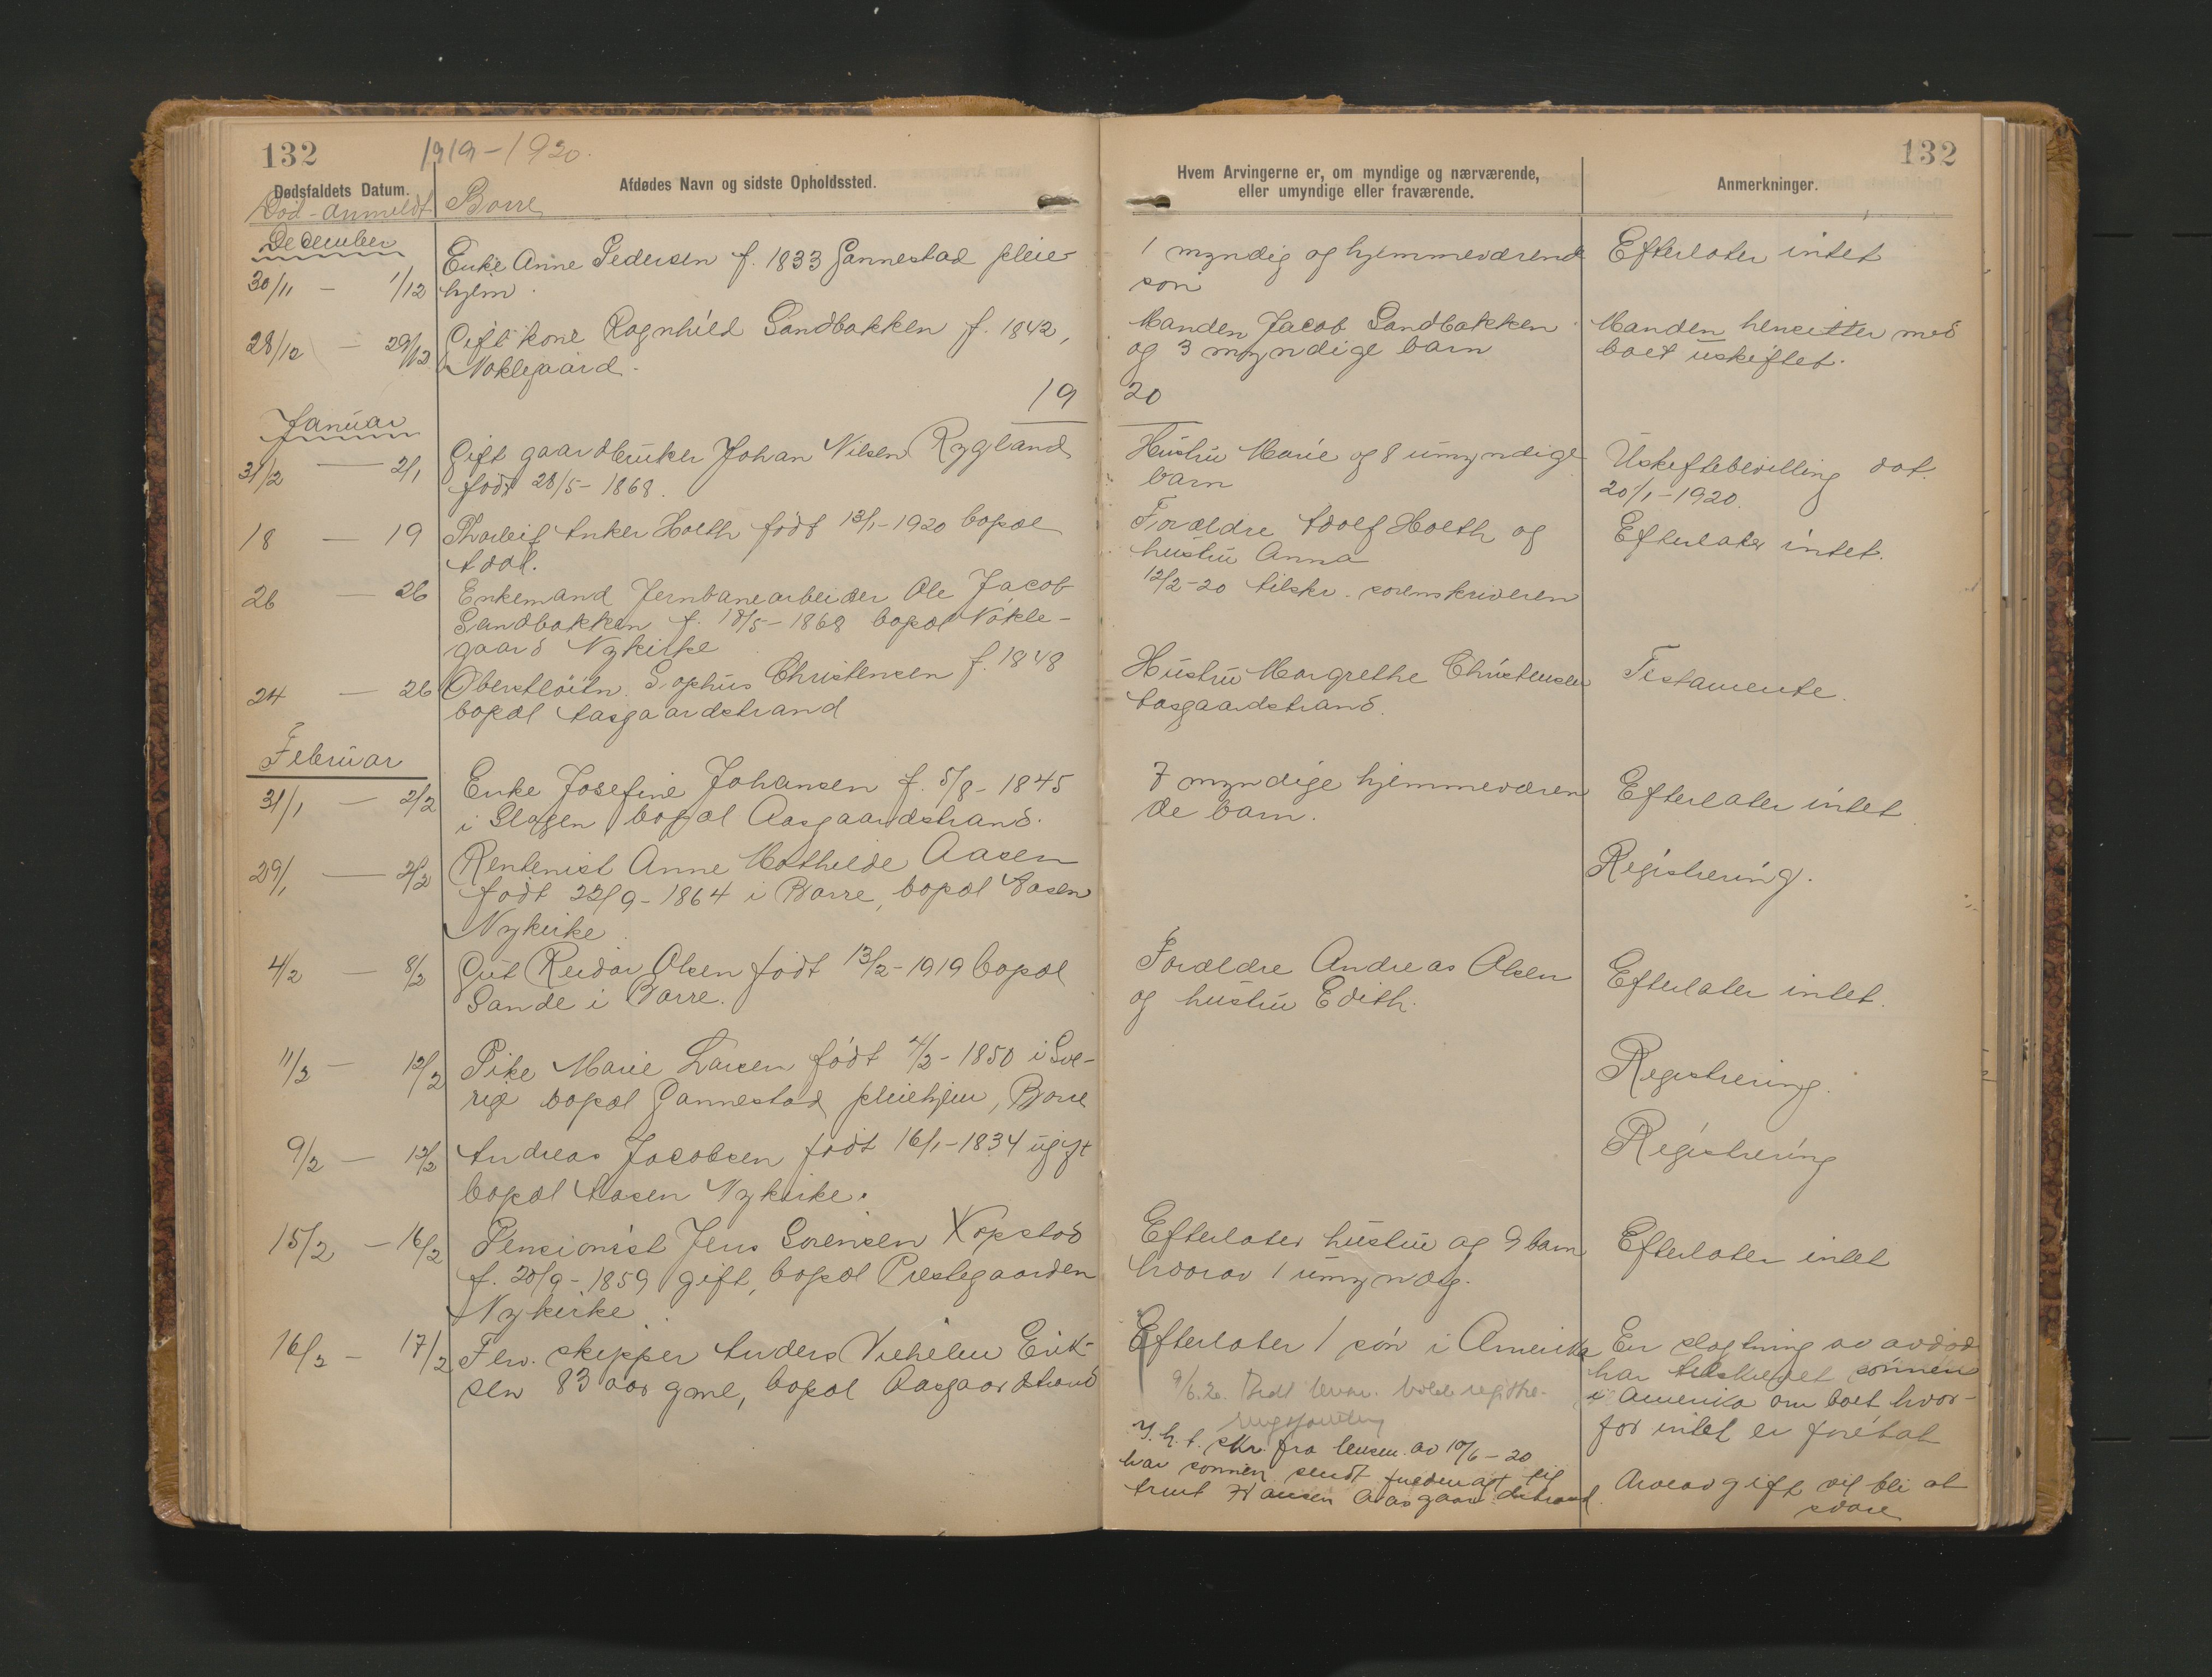 132
1919-1920.
Dødsfaldets Datum.
Afdødes Navn og sidste Opholdssted.
Død - anmeldt
Borre
December
30/11 - 1/12
Enke Anne Pedersen f. 1833 Gannestad pleie-
hjem.
28/12 - 29/12
Gift kone Ragnhild Sandbakken f. 1842,
Nøklegaard.
19
Januar
31/12 - 2/1
Gift gaardbruker Johan Nilsen Rygland
født 28/5-1868.
18 - 19
Thorleif Anker Holth født 13/1-1920 bopæl
Adal.
26 - 26
Enkemand Jernbanearbeider Ole Jacob
Sandbakken f. 18/5-1868 bopæl Nøkle-
gaard Nykirke
24 - 26
Oberstløitn. Sophus Christensen f. 1848
bopæl Aasgaardstrand
Februar
31/1 - 2/2
Enke Josefine Johansen f. 5/8-1845
i Slagen bopæl Aasgaardstrand.
29/1 - 2/2
Rentenist Anne Mathilde Aasen
født 22/9-1864 i Borre, bopæl Aasen
Nykirke
4/2 - 8/2
Gut Reidar Olsen født 13/2-1919 bopæl
Sande i Borre.
11/2 - 12/2
Pike Marie Larsen født 4/2-1850 i Sve-
rige bopæl Gannestad pleiehjem, Borre
9/2 - 12/2
Andreas Jacobsen født 16/1-1834 ugift
bopæl Aasen Nykirke.
15/2 - 16/2
Pensionist Jens Sørensen Kopstad
f. 20/9-1859 gift, bopæl Prestegaarden
Nykirke.
16/2 - 17/2
Flv. skipper Anders Vilhelm Erik-
sen 83 aar gml, bopæl Aasgaardstrand
132
Hvem Arvingerne er, om myndige og nærværende,
eller umyndige eller fraværende.
Anmerkninger.
1 myndig og hjemmeværend
søn
Efterlater intet
Manden Jacob Sandbakken
og 3 myndige barn
Manden hensitter med
boet uskiftet.
20
Hustru Marie og 8 umyndige
barn
Uskiftebevilling dat.
20/1-1920.
Forældre Adolf Holth og
hustru Anna
Efterlater intet.
12/2-20 tilskr. sorenskriveren
Hustru Margrethe Christensen
Aasgaardstrand.
Testamente.
7 myndige hjemmeværen
de barn.
Efterlater intet
Registrering.
Forældre Andreas Olsen
og hustru Edith.
Efterlater intet.
Registrering.
Registrering
Efterlater hustru og 9 barn
hvorav 1 umyndig.
Efterlater intet
Efterlater 1 søn i Amerika
9/6.20. Bedt lensm. holde registre-
ringsforretning
I. h. t. skr. fra lensm. av 10/6-20
har sønnen sendt fuldmagt til
Hansen Aasgaardstrand.
En slegtning av avdød
har tilskrevet sønnen
i Amerika om boet hvor-
for intet er foretat
Arveavgift vil bli at
svare